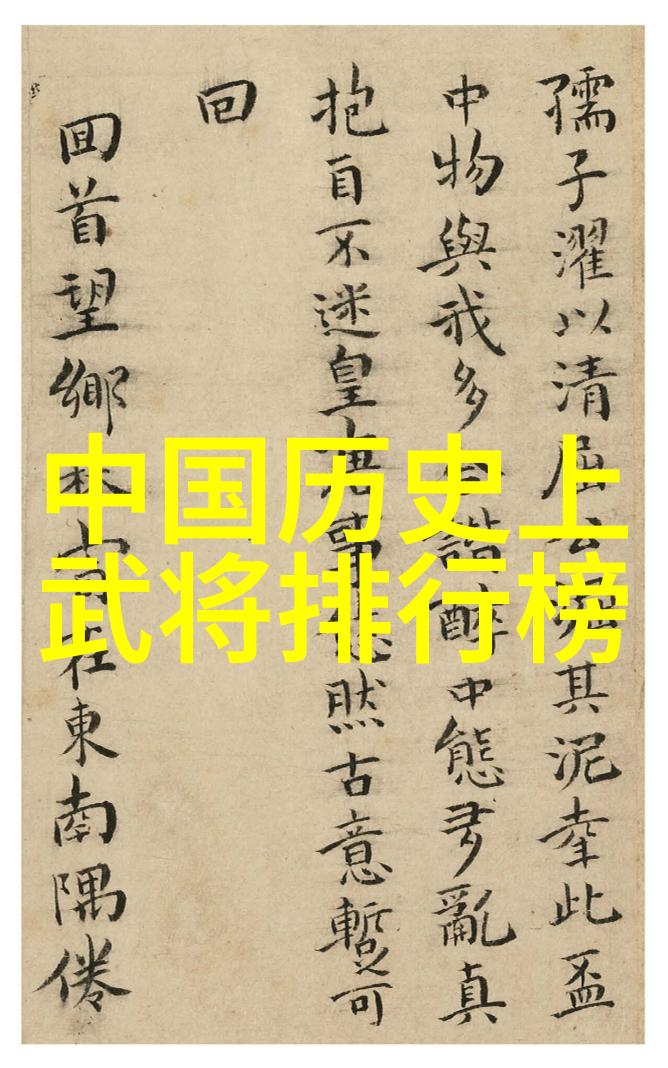 中国历史上
武将排行榜
孺子濯以清屈公其泥此盃
中物與我多諧醉中態亂真
抱自不迷皇事然古意暫可
回
囬首望鄉在東南隅倦